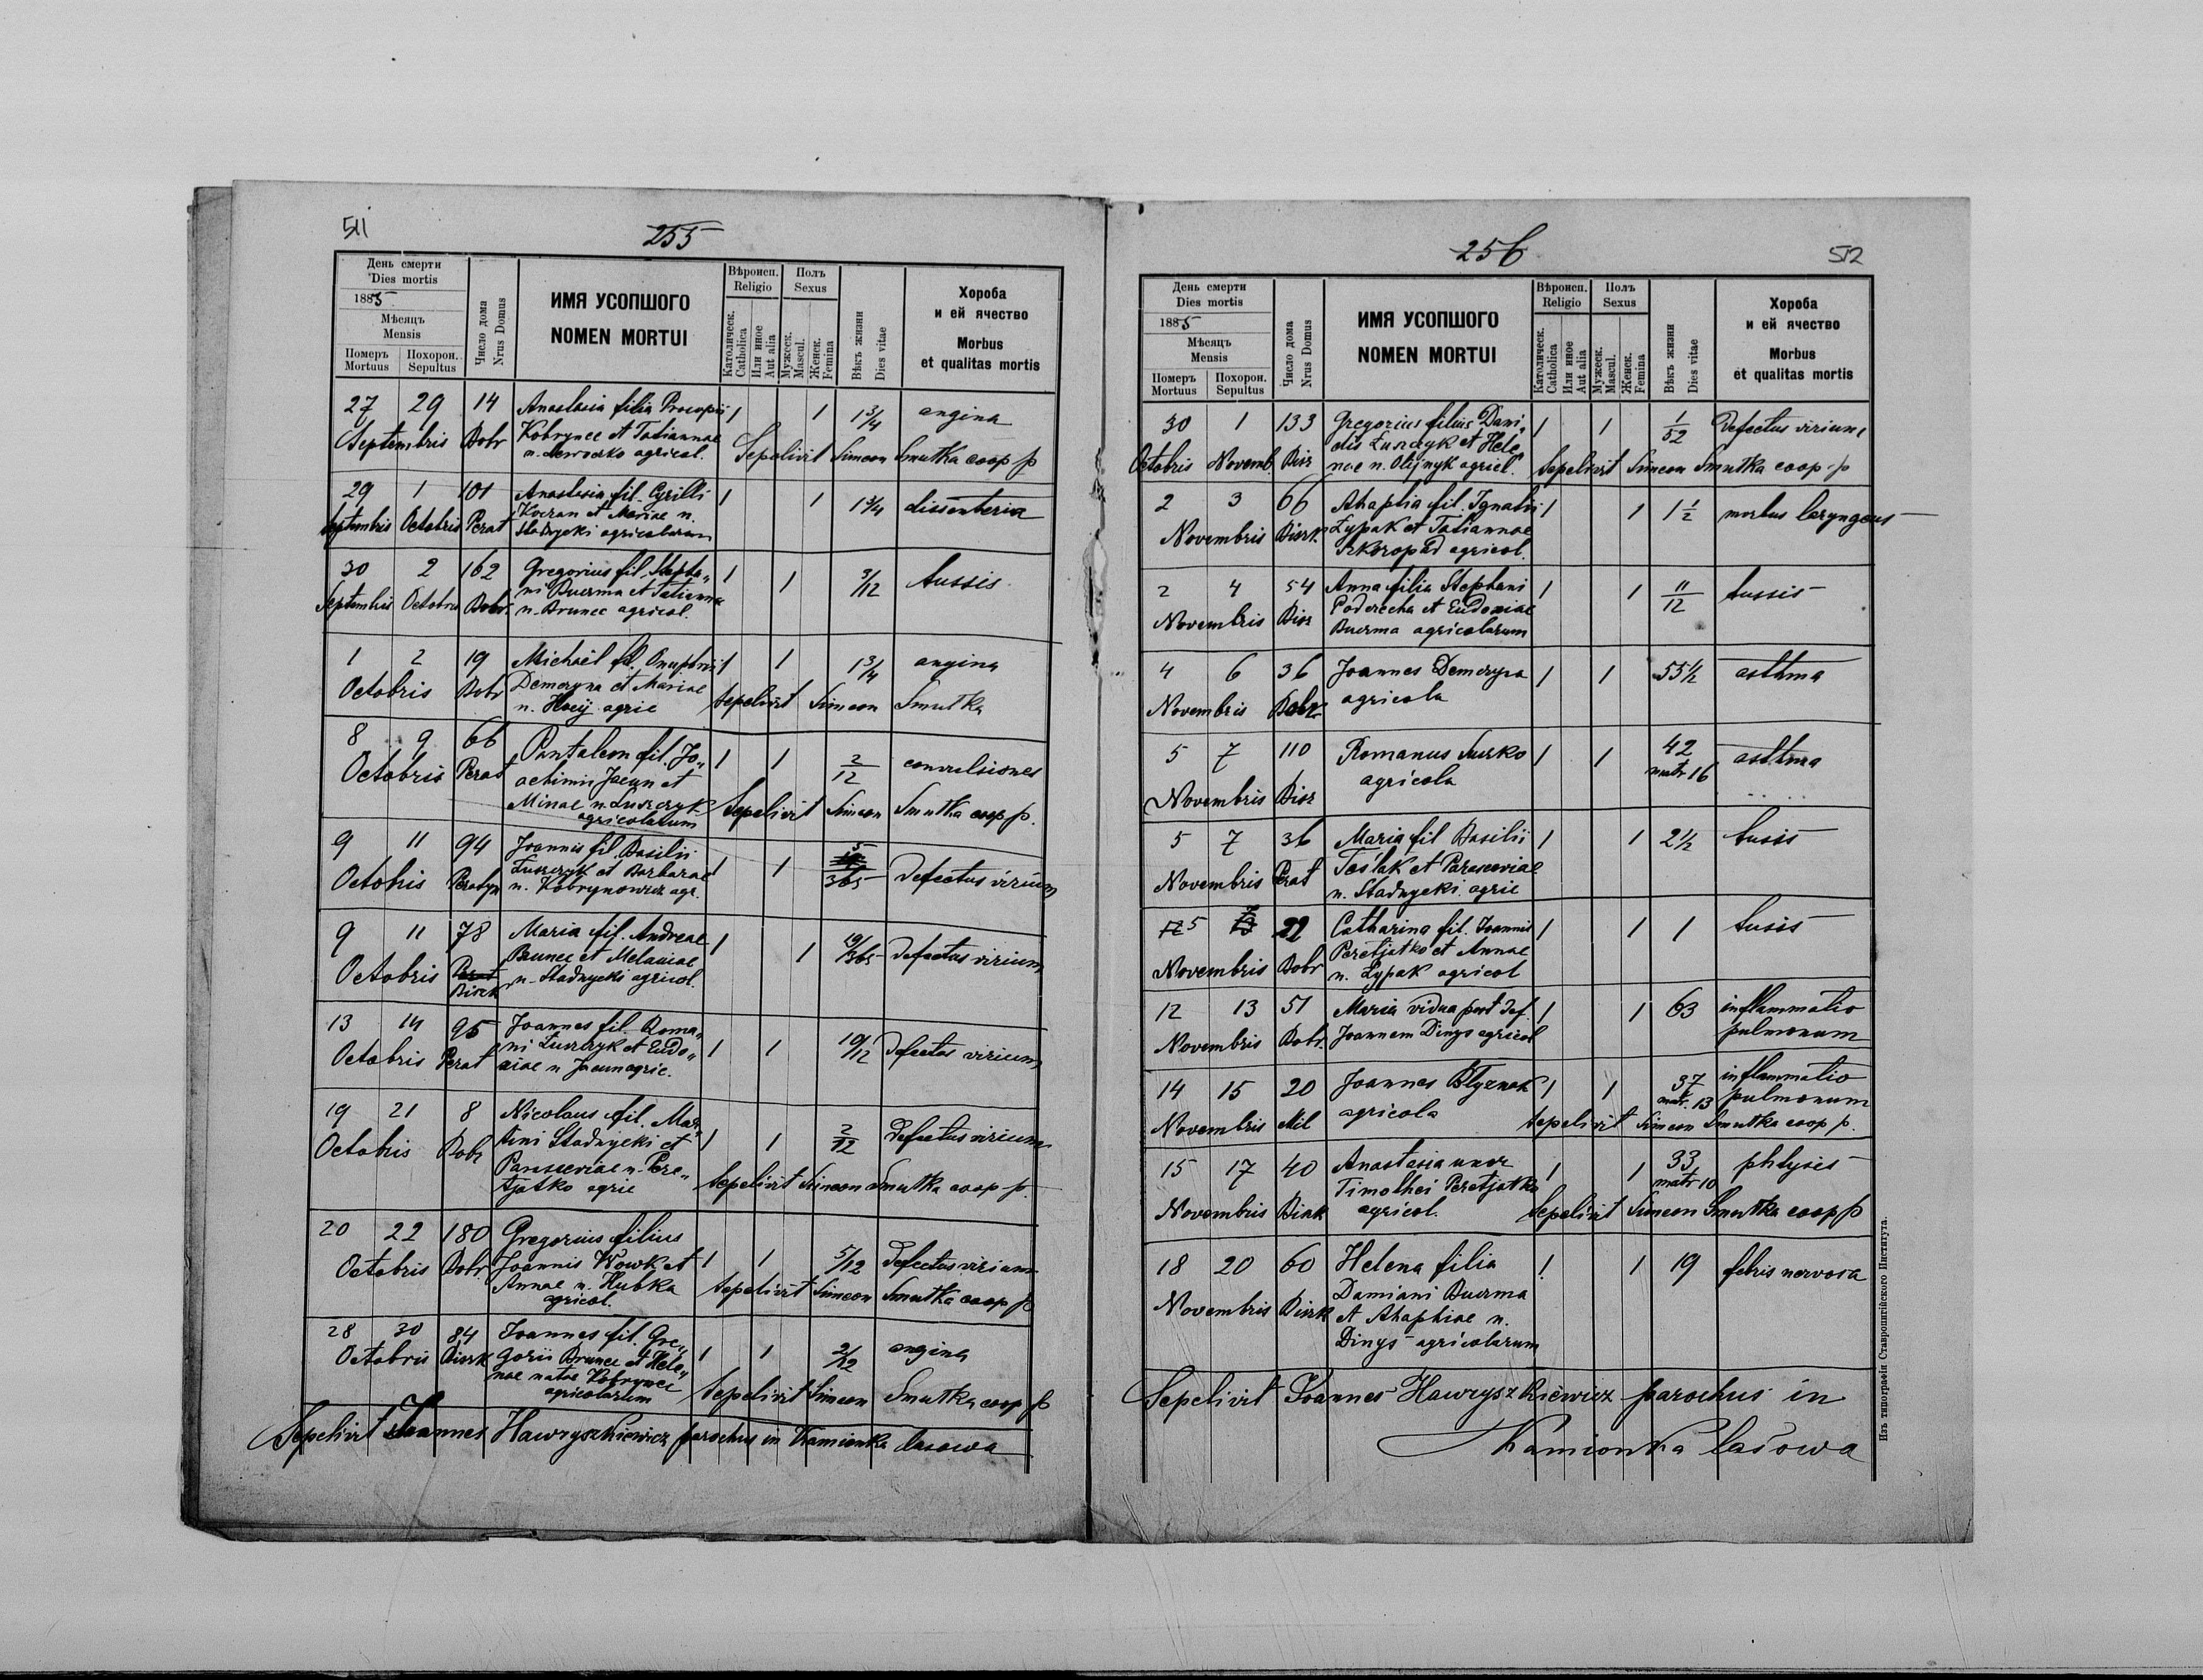 511
255
День смерти
Dies mortis
1885
Мѣсяцъ
Mensis
Померъ Похорон.
Mortuus Sepultus
Число дома
Nrus Domus
ИМЯ УСОПШОГО
NOMEN MORTUI
Вѣроисп.
Religio
Католическ.
Catholica
Или иное
Aut alia
Полъ
Sexus
Мужеск.
Mascul.
Женск.
Femina
Вѣкъ жизни
Dies vitae
Хороба
и ей ячество
Morbus
et qualitas mortis
27 29 14 Anastasia filia Procopii 1 1 1 3/4 angina
Septembris Bobr Kobrynec et Tatiannae
n. agricol. Sepelivit Simeon Smutka coop p
29 1 101 Anastasia fil. Cyrilli 1 1 1 3/4 dissenteria
Septembris Octobris Perat Koczan et Mariae n.
Stadnycki agricolarum
30 2 162 Gregorius fil. Stepha„ 1 1 3/12 tussis
Septembris Octobris Bobr. ni Buczma et Tatianna
n. Brunec agricol.
1 2 19 Michaël fil. Onuphrii 1 1 1 3/4 angina
Octobris Bobr Demczyna et Mariae
n. agric Sepelivit Simeon Smutka
8 9 66 Pantaleon fil. Jo„ 1 1 2/12 convulsiones
Octobris Perat achimii Jacun et
Minae n. Luszczyk Sepelivit Simeon Smutka coop p.
agricolarum
9 11 94 Joannis fil. Basilii 1 1 5/365 Defectus virium
Octobris Peratyn Luszczyk et Barbarae
n. Kobrynowicz agr.
9 11 78 Maria fil. Andreae 1 1 19/365 Defectus virium
Octobris Perat Brunec et Melaniae
Bisrk n. Stadnycki agricol.
13 14 95 Joannes fil. Roma„ 1 1 10/12 Defectus virium
Octobris Perat ni Luszczyk et Eudo„
xiae n Jacun agric.
19 21 8 Nicolaus fil. Mar„ 1 1 2/12 Defectus virium
Octobris Bobr tini Stadnycki et
Parasceviae n. Pere„
tjatko agric Sepelivit Simeon Smutka coop p.
20 22 180 Gregorius filius 1 1 5/12 Defectus virium
Octobris Bobr Joannis Wowk et
Annae n. Hubka Sepelivit Simeon Smutka coop p
agricol.
28 30 84 Joannes fil. Gre„ 1 1 2/12 angina
Octobris Bisrk gorii Brunec et Hele„
nae natae Kobrynec
agricolarum Sepelivit Simeon Smutka coop p
Sepelivit Joannes Hawryszkiewicz parochus in Kamionka lasowa
256
512
День смерти
Dies mortis
1885
Мѣсяцъ
Mensis
Померъ Похорон.
Mortuus Sepultus
Число дома
Nrus Domus
ИМЯ УСОПШОГО
NOMEN MORTUI
Вѣроисп.
Religio
Католическ.
Catholica
Или иное
Aut alia
Полъ
Sexus
Мужеск.
Mascul.
Женск.
Femina
Вѣкъ жизни
Dies vitae
Хороба
и ей ячество
Morbus
et qualitas mortis
30 1 133 Gregorius filius Dani„ 1 1 1/52 Defectus virium
Octobris Novemb. Bisr elis Luszczyk et Hele„
nae n. Olijnyk agricl. Sepelivit Simeon Smutka coop p
2 3 66 Ahaphia fil. Ignatii 1 1 1 1/2 morbus laryngeus
Novembris Bisrk Łypak et Tatiannae
Szkoropad agricol.
2 4 54 Anna filia Stephani 1 1 11/12 tussis
Novembris Bisr Poderecha et Eudoxiae
Buczma agricolarum
4 6 36 Joannes Demczyna 1 1 55 1/2 asthma
Novembris Bobr agricola
5 7 110 Romanus Surko 1 1 42 asthma
matr 16
Novembris Bisr agricola
5 7 36 Maria fil Basilii 1 1 2 1/2 tusis
Novembris Perat Teslak et Parasceviae
n. Stadnycki agric
5 7 22 Catharina fil. Joannis 1 1 1 tusis
Novembris Bobr Peretjatko et Annae
n. Łypak agricol
12 13 51 Maria vidua post def. 1 1 63 inflammatio
Novembris Bobr. Joannem Dinys agricol pulmonum
14 15 20 Joannes Błyznak 1 1 37 inflammatio
matr. 13 pulmonum
Novembris Mil agricola Sepelivit Simeon Smutka coop p.
15 17 40 Anastasia uxor 1 1 33 phtysis
matr 10
Timothei Peretjatko
Novembris Bisrk agricol. Sepelivit Simeon Smutka coop p
18 20 60 Helena filia 1 1 19 febris nervosa
Novembris Bisrk Damiani Buczma
et Ahaphiae n.
Dinys agricolarum
Sepelivit Joannes Hawryszkiewicz parochus in
Kamionka lasowa
Изъ типографіи Ставропигійского Института.